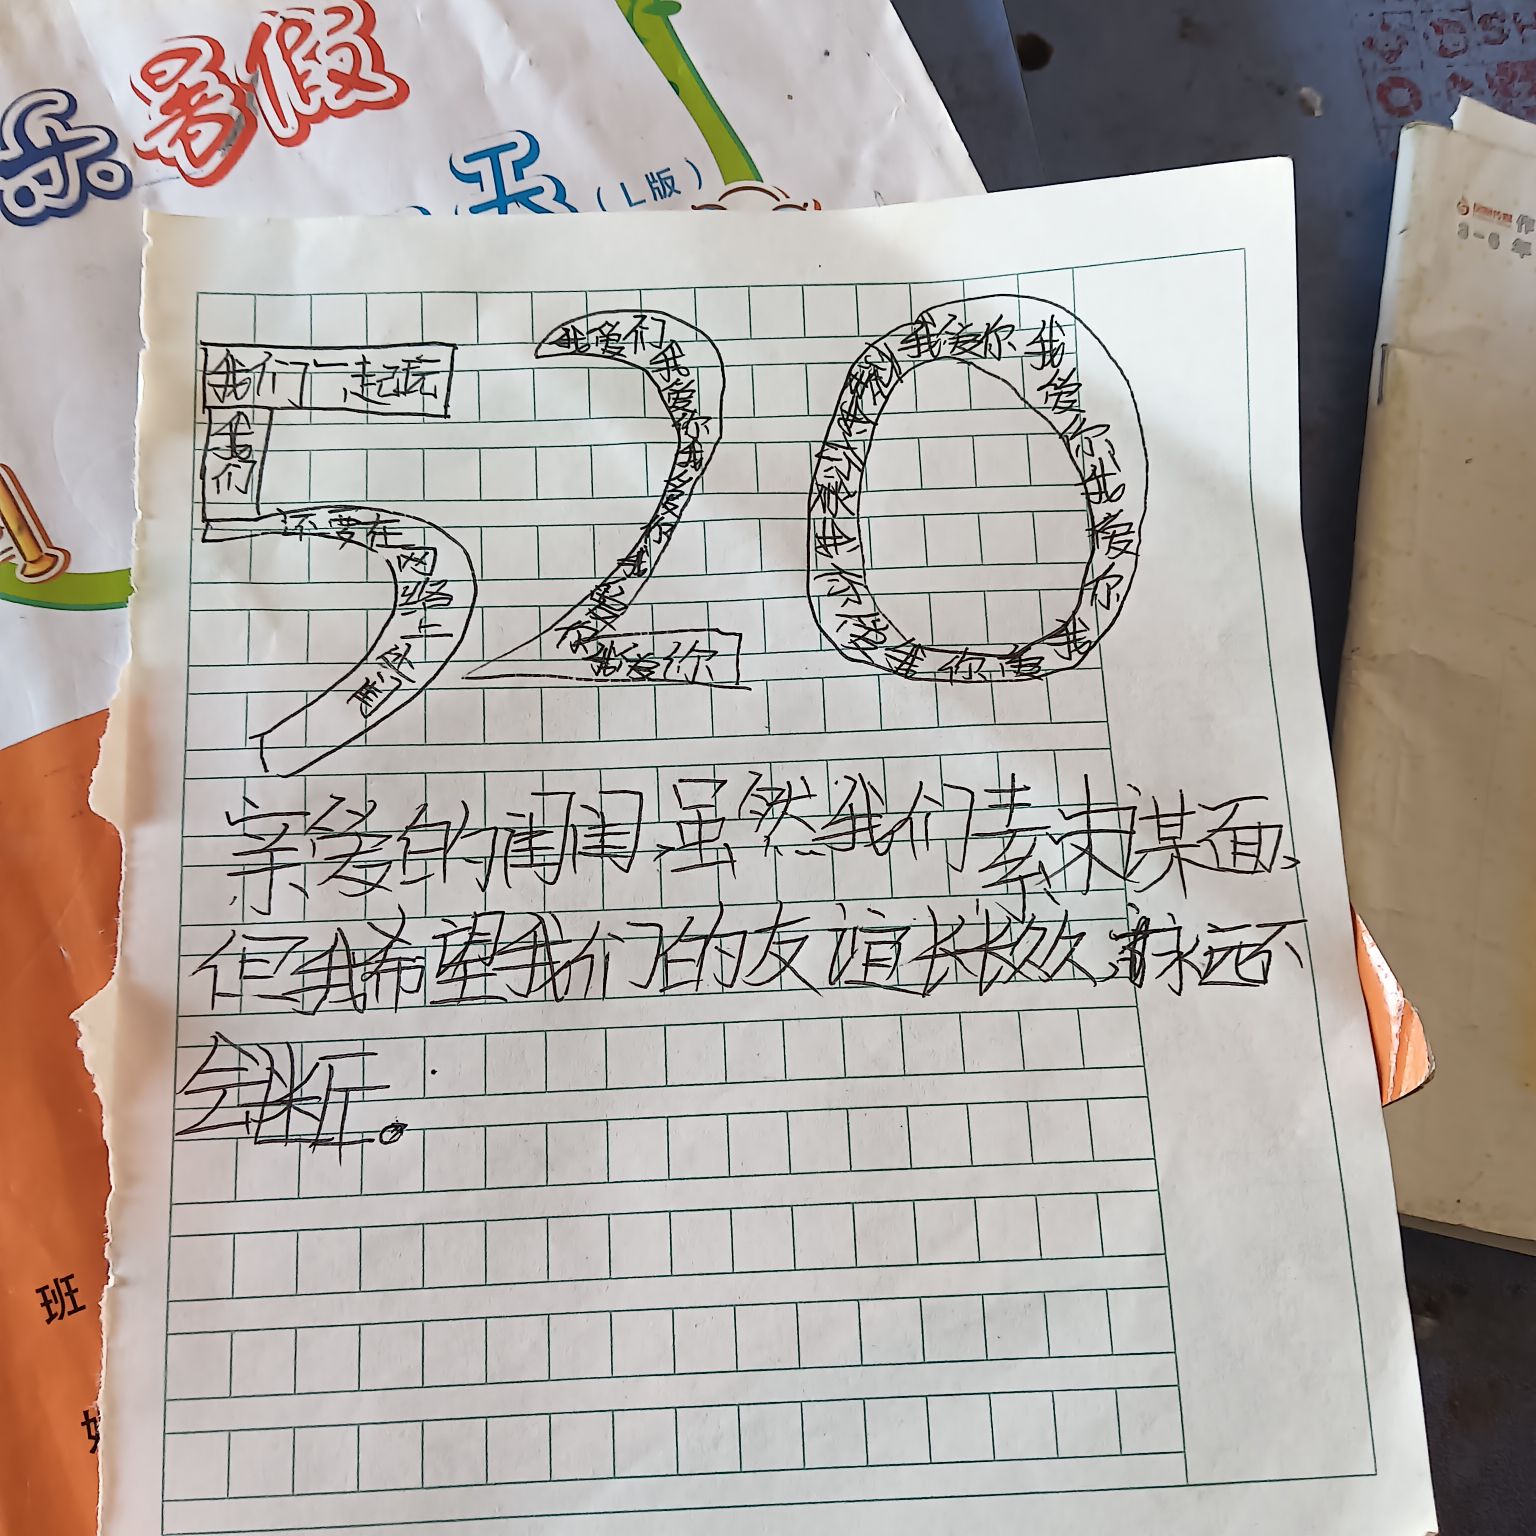 乐暑假
（L版）
作
3-6 年
我们一起玩
我们
还要在
网络上
我爱们
我爱你我爱你我爱你
我爱你
我爱你我爱你我爱你我
亲爱的闺闺虽然我们素未谋面、
但我希望我们的友谊长长久久永远不
会断。
班